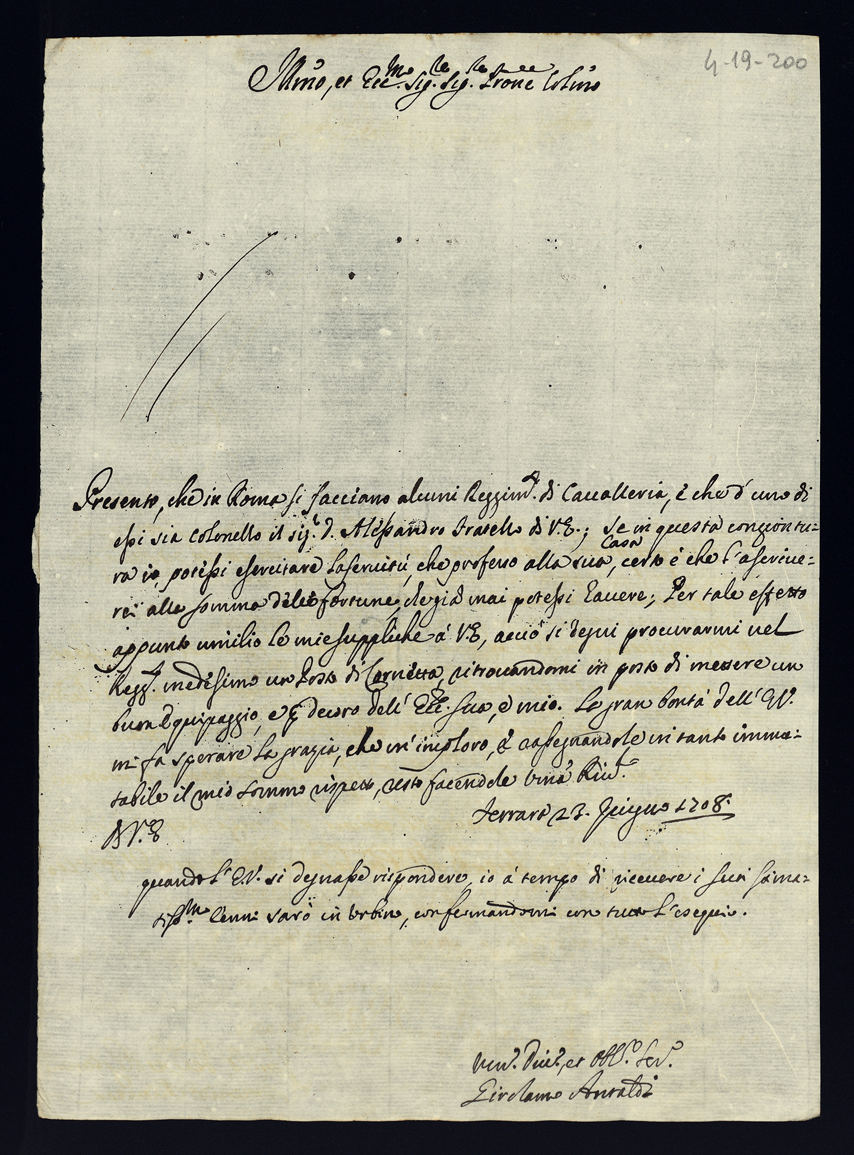 4-19-200
Illmo, et Ecc.mo Sig.re Sig.re Prone Colmo
Presento, che in Roma si facciano alcuni Reggim.ti di Cavalleria, è che d'uno di
essi sia Colonello il Sig.r D. Alessandro fratello di V.E.; se in questa congiontu=
ra io potessi esercitare la servitù, che professo alla sua Casa, certo è che l'ascrive=
rei alla somma delle fortune, che già mai potessi havere; Per tale effetto
appunto umilio le mie suppliche à V.E, acciò si degni procurarmi nel
Regg.to medesimo un Posto di Cornetta, ritrovandomi in posto di mettere un
buon Equipaggio, e p decoro dell' Ecc. Sua, e mio. La gran bontà dell' E.V.
mi fa sperare la grazia, che in imploro, è rassegnandole in tanto immu=
tabile il mio sommo rispetto, resto facendole um.a Riu.za
D V.E
Ferrara 23. Giugno 1708.
quando l'E.V. si degnasse rispondere, io à tempo di ricevere i suoi stima=
tiss.mi cenni sarò in Urbino, confermandomi con tutto l'ossequio.
et Obl.o Ser.e
Girolamo Antaldi